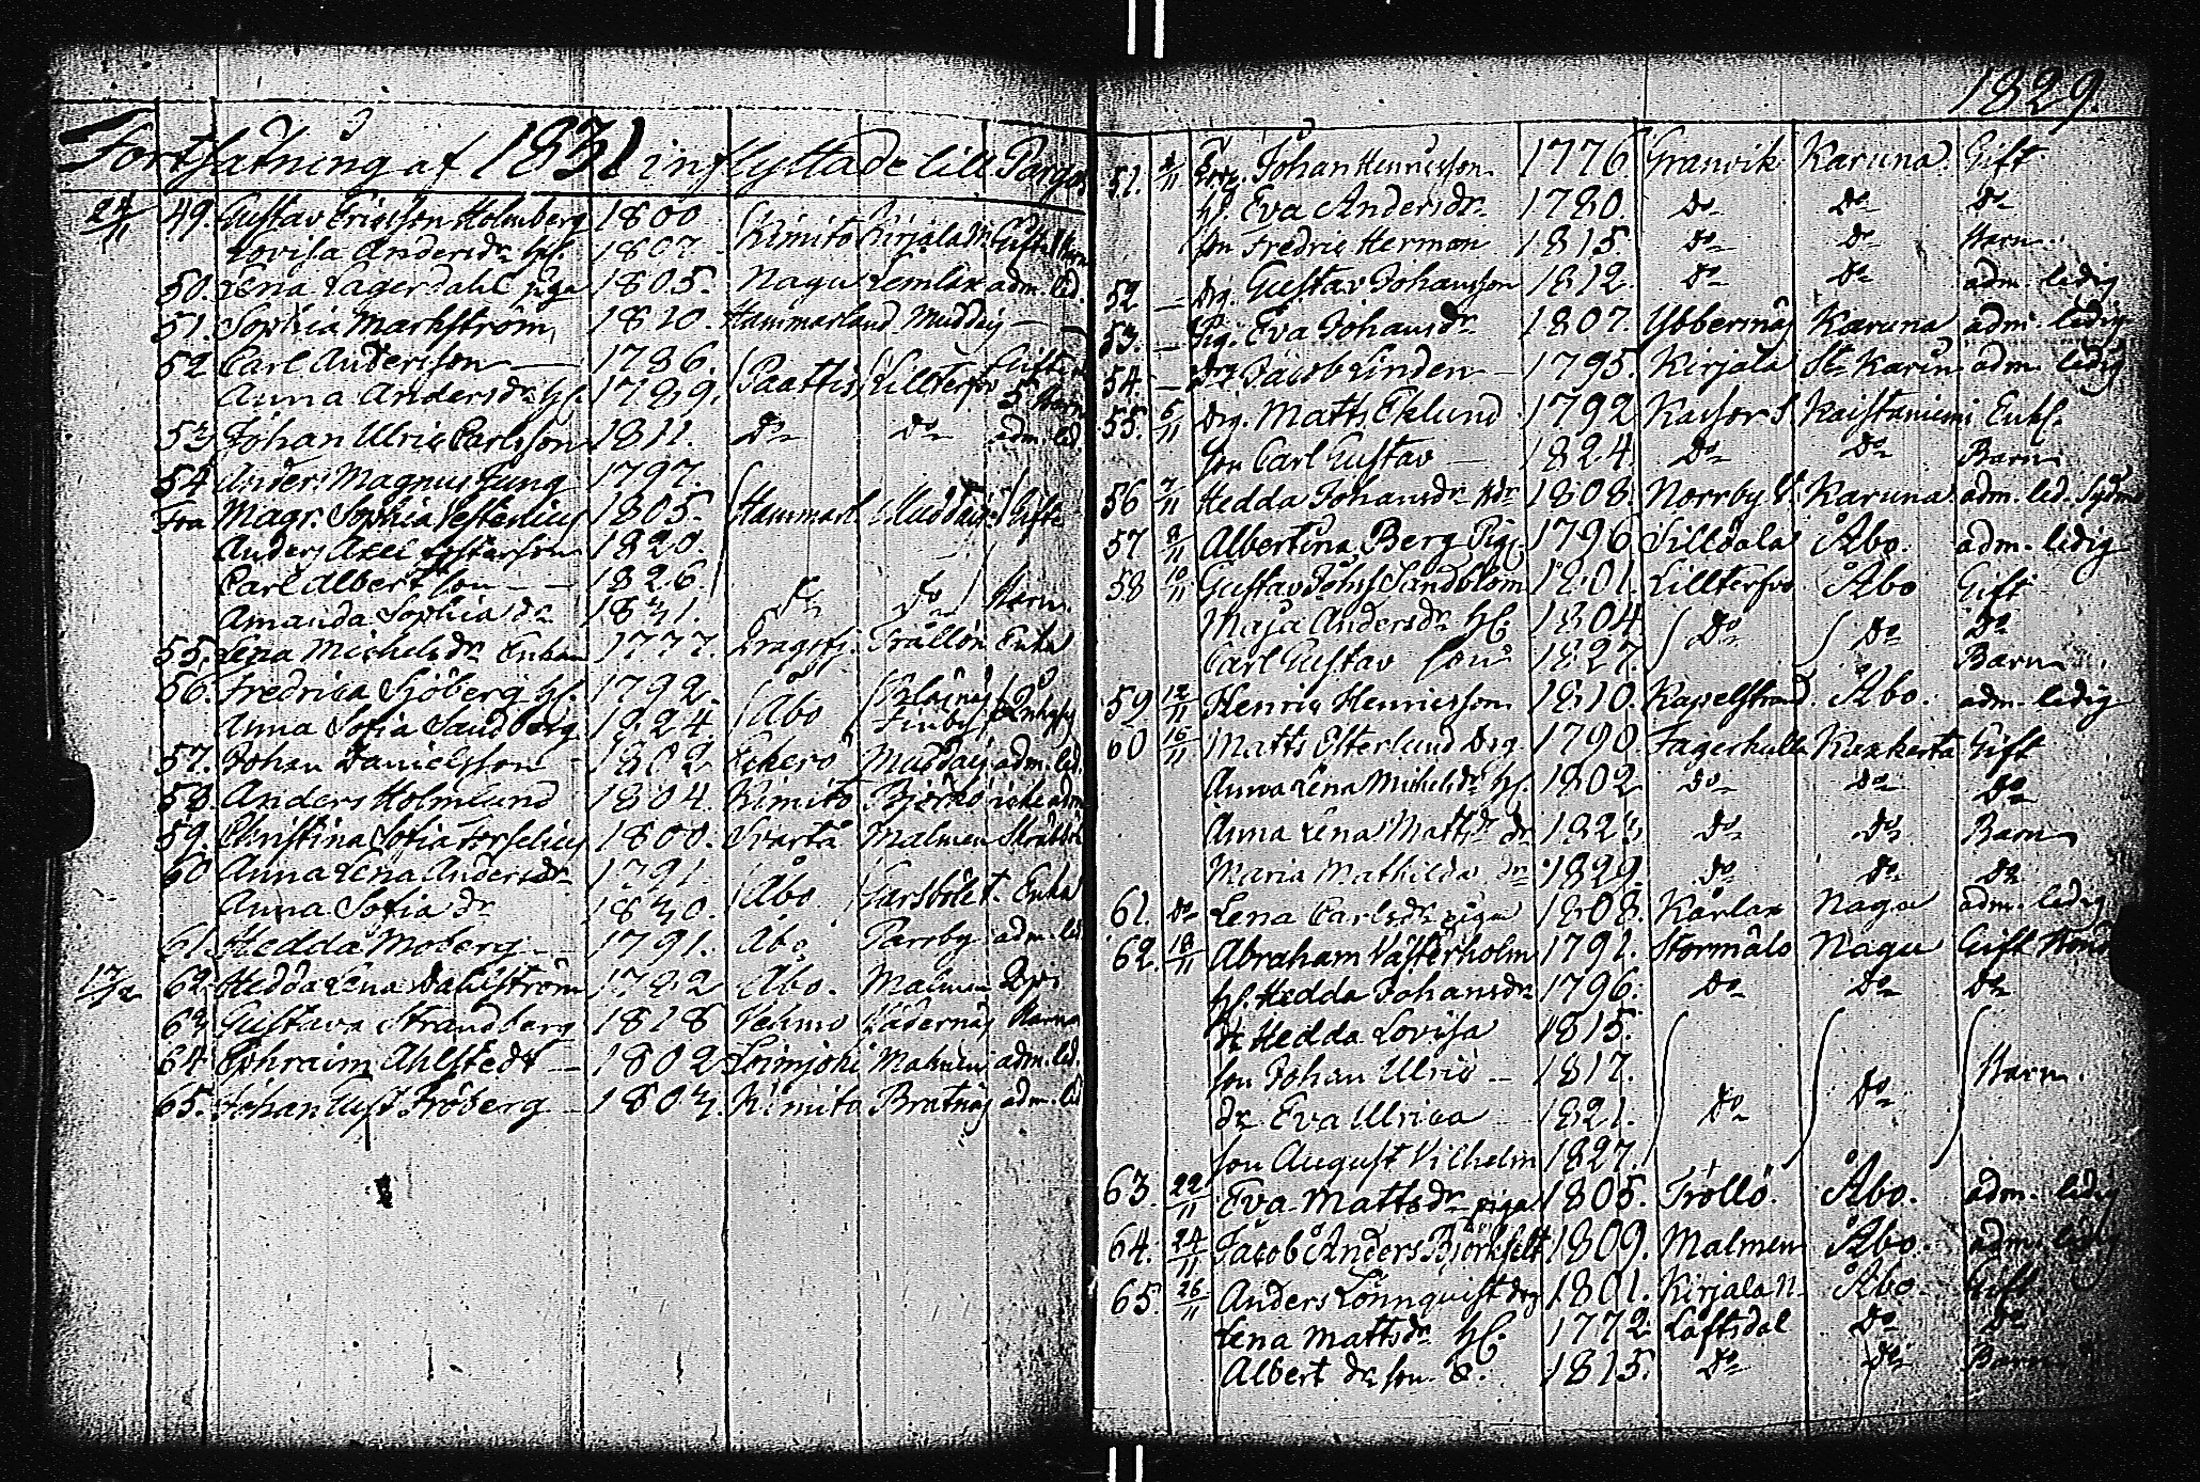 Fortsätning af 1831 inflyttade till Pargas
24/11 49. Gustav Ericsson Holmberg 1800 Kimito Kirjala N. Gift
Lovisa Andersdr hf. 1807
50. Lena Lagerdahl piga 1805. Nagu Lemlax adm. led.
51. Sophia Markström 1810. Hammarland Muddais —
52 Carl Andersson — 1786. Paattis Lilltervo Gifte
Anna Andersdr hf. 1789. 5 barn
53 Johan Ulric Carlsson 1811. Do Do adm. led.
54 Anders Magnus Jung 1797.
Fru Magr. Sophia 1805. Hammarl. Muddais Gifte
Anders Axel fosterson 1820.
Carl Albert son — 1826.
Amanda Sophia dr 1831. Do Do Barn.
55. Lena Michelsdr Enkan 1777. Dragsfj. Trällön Enka
56. Fredrica Sjöberg hf. 1792. Åbo
Anna Sofia Sandberg 1824. Finby
57. Johan Danielsson 1802 Muddais adm. led.
58. Anders Holmlund 1804. Kimito Bjerkö icke adm
59. Christina Sofia 1800. Svartå Malmen
60 Anna Lena Andersdr 1791. Åbo Garsböle t. Enka
Anna Sofia dr 1830.
61. Hedda Moberg — 1791. Åbo Parsby adm. led.
17/12 62. Hedda Lena Dahlström 1782 Åbo. Malmen
63 Gustava Strandberg 1818 Vehmo Vädernäs Barn
64. Ephraim Ahlstedt — 1802 Loimjoki Malmen adm. led.
65. Johan Gust Fröberg — 1803. Kimito Bratnäs adm. led
1829.
51. 2/11 Johan Henricsson 1776. Granvik Karuna Gift
hf. Eva Andersdr 1780. Do Do Do
son Fredric Herman 1815 Do Do Barn.
52 — drg. Gustav Johansson 1812. Do Do adm. ledig
53. — Pig. Eva Johansdr 1807. Ybbernäs Karuna adm. ledig
54. — drg Jacob Linden — 1795. Kirjala St Karin adm. ledig
55. 6/11 drg. Matts Eklund 1792 Kaistaniemi Enkl.
son Carl Gustav — 1824. Do Do Barn
56 7/11 Hedda Johansdr 1808. Norrby Karuna adm. led.
57 8/11 Albertina Berg Pig. 1796 Silldala Åbo. adm. ledig
58 10/11 Gustav Johss Sandblom 1801. Lilltervo Åbo Gift
Maja Andersdr hf. 1804. Do Do Do
Carl Gustav son 1827. Barn
59 12/11 Henric Henricsson 1810. Kasselstrand. Åbo. adm. ledig
60 16/11 Matts Österlund drg. 1790. Fagerkulla Kuxkerta Gift
Anna Lena Michelsdr hf. 1802 Do Do Do
Anna Lena Mattsdr dr 1823 Do Do Barn
Maria Mathilda dr 1829. Do Do Do
61. Do Lena Carlsdr piga 1808. Kårlax Nagu adm. ledig
62. 18/11 Abraham Västerholm 1791. Stormälö Nagu Gift
hf. Hedda Johansdr 1796. Do Do Do
dr Hedda Lovisa 1815.
son Johan Ulric — 1817. Barn.
dr Eva Ulrica 1821. Do Do
son August Vilhelm 1827.
63. 22/11 Eva Mattsdr piga 1805. Trollö. Åbo. adm. ledig
64. 24/11 Jacob Anders Björkfelt 1809. Malmen Åbo. adm. ledig
65. 26/11 Anders Lönnqvist drg 1801. Kirjala N. Åbo. Gift
Lena Mattsdr hf. 1772. Låftsdal Do Do
Albert dr son 1815. Do Do Barn